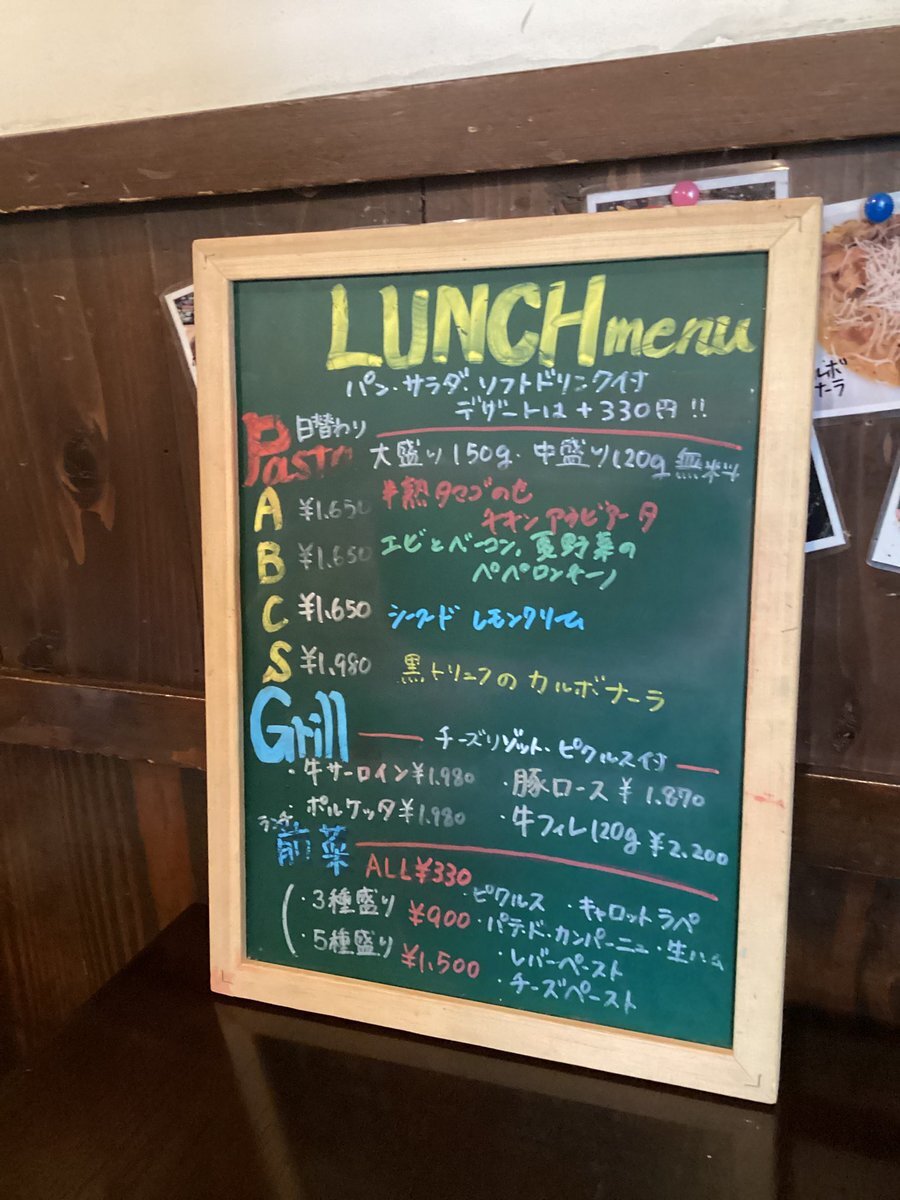 LUNCH menu
パン・サラダ・ソフトドリンク付
デザートは+330円!!
Pasta 日替わり
大盛り150g・中盛り120g 無料
A ¥1.650 半熟タマゴの
アラビアータ
B ¥1.650 エビとベーコン、夏野菜の
ペペロンチーノ
C ¥1.650 シーフード レモンクリーム
S ¥1.980 黒トリュフのカルボナーラ
Grill チーズリゾット・ピクルス付
・牛サーロイン¥1.980 ・豚ロース¥1.870
・ポルケッタ¥1.980 ・牛フィレ120g ¥2.200
ランチ
前菜 ALL¥330
・3種盛り ¥900
・5種盛り ¥1,500
・ピクルス ・キャロットラペ
・パテド・カンパーニュ・生ハム
・レバーペースト
・チーズペースト
ルボ
ナーラ